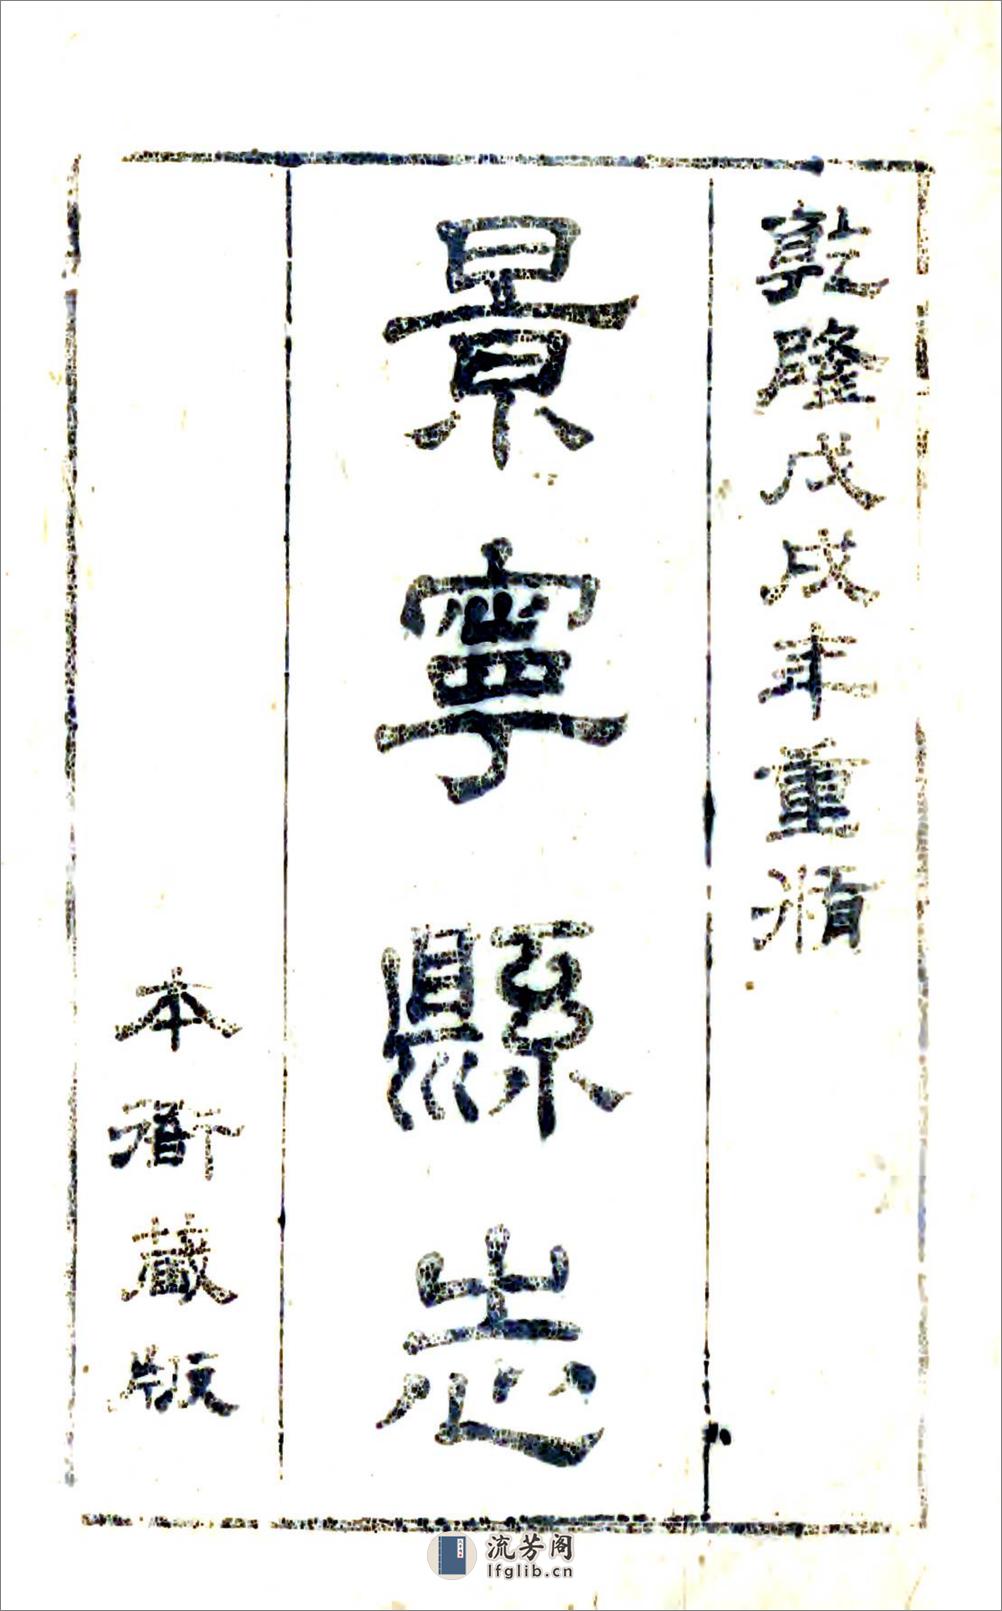 乾隆戊戌年重脩
景寧縣志
本衙藏版
流芳阁
lfglib.cn